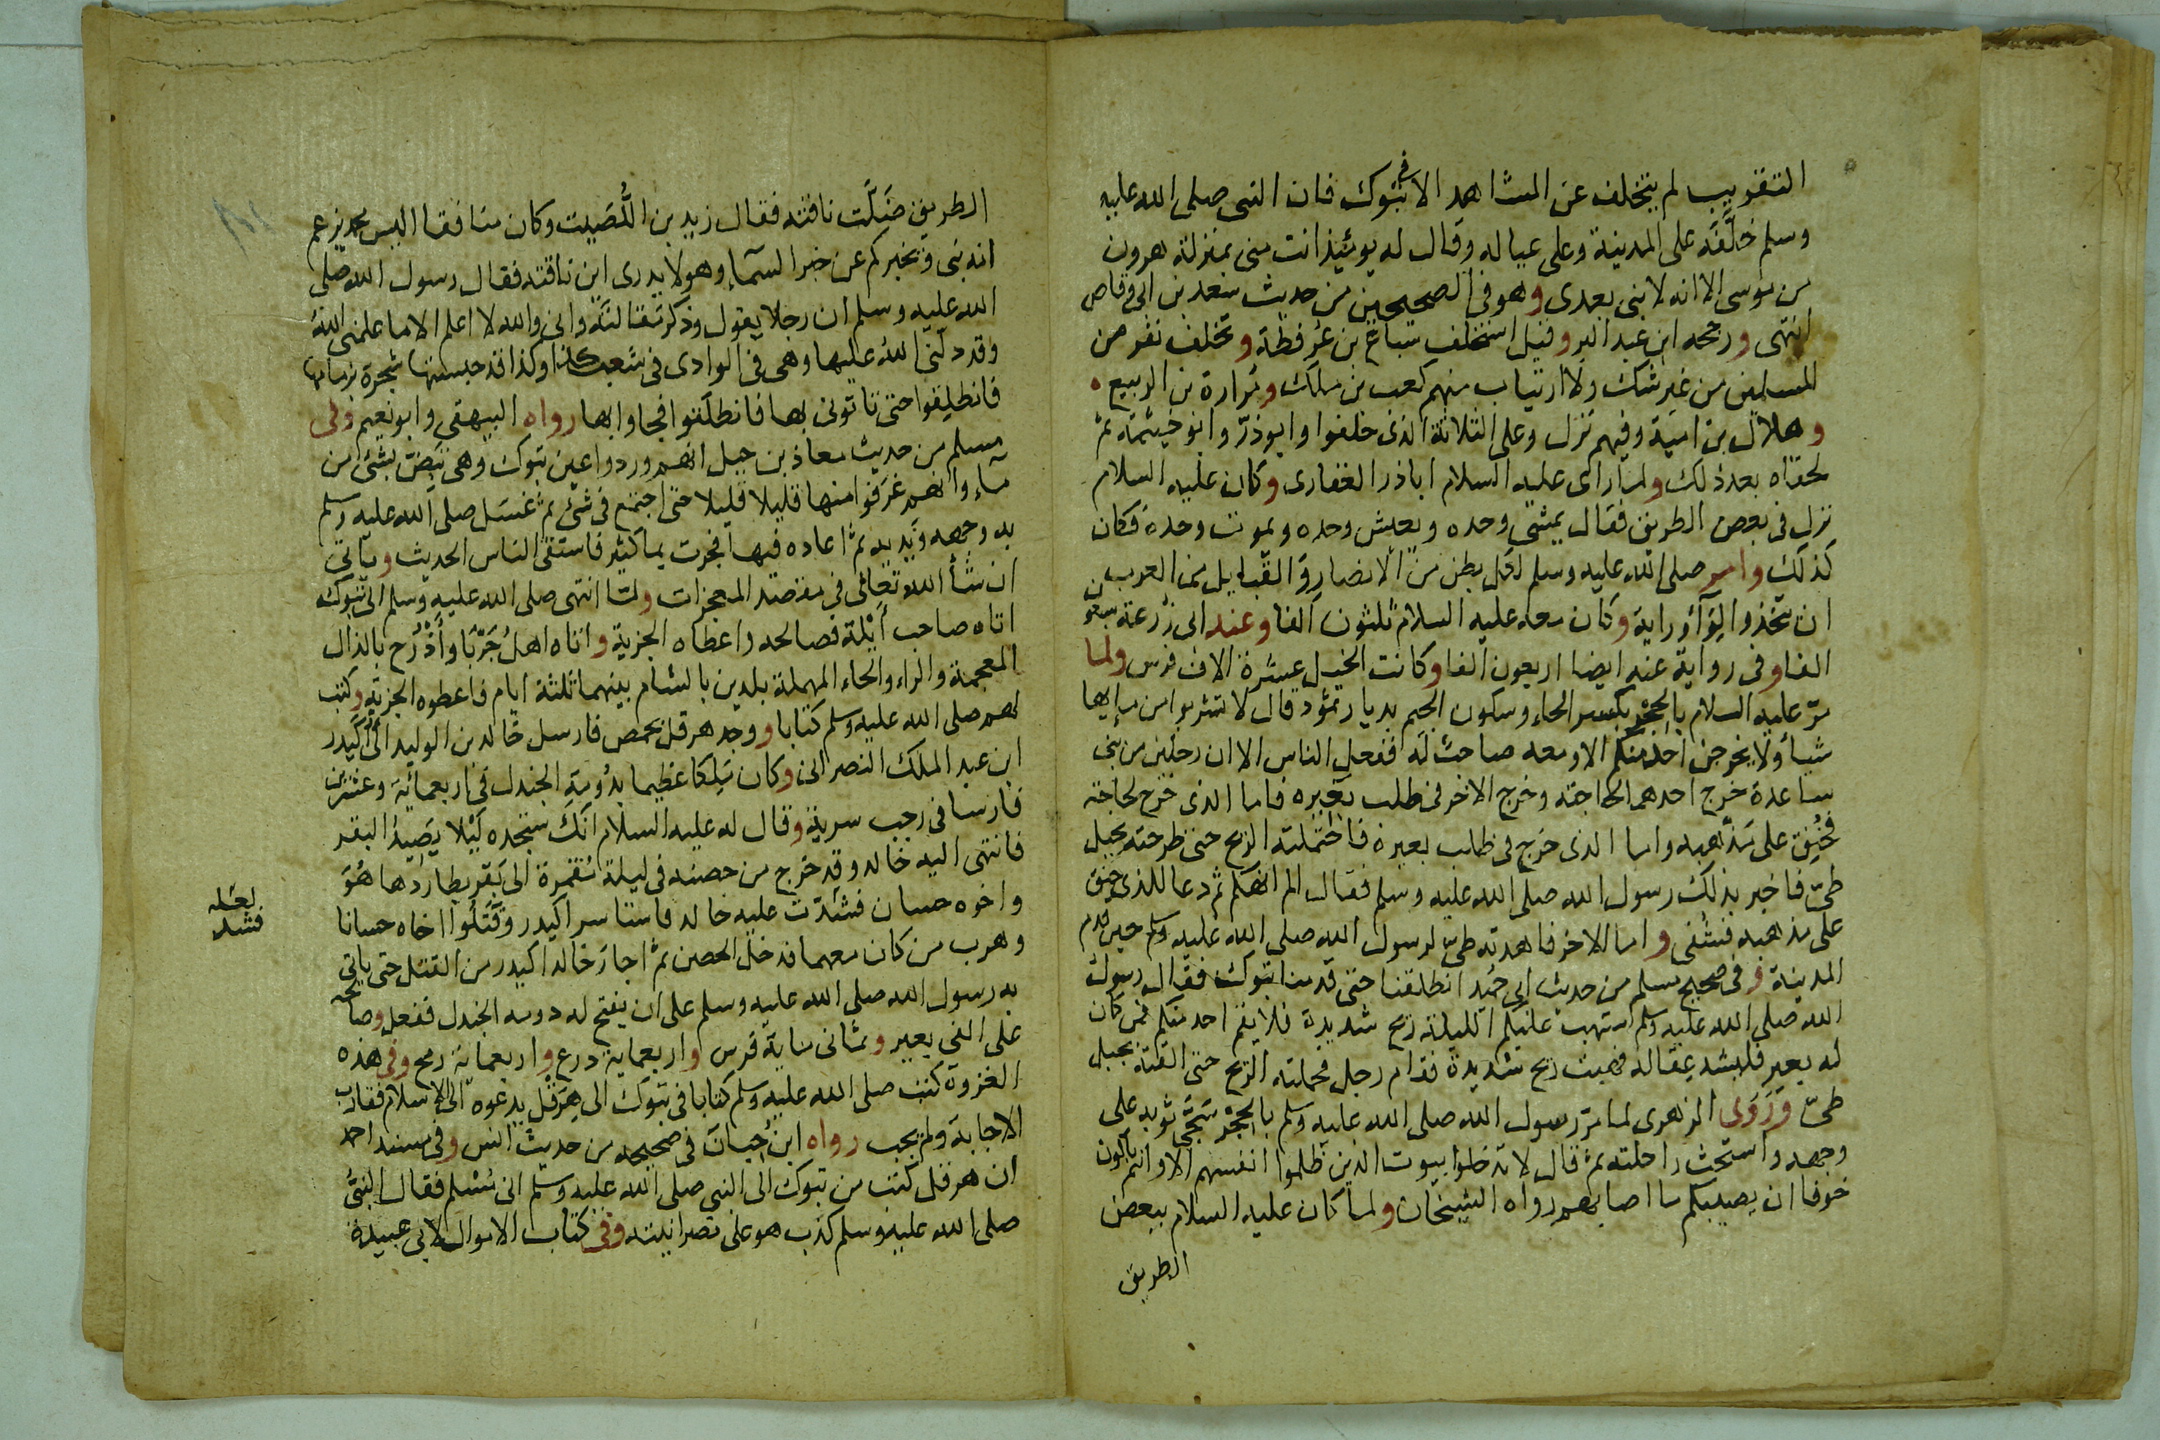 التقريب لم يتخلف عن المشاهد الا في تبوك فان النبى صلى الله عليه
وسلم خلّفه على المدينة وعلى عياله وقال له يومئيذ انت منى بمنزلة هرون
من موسى الا انه لا نبى بعدى وهو فى الصحيحين من حديث سعد بن ابى وقاص
انتهى ورجحه ابن عبد البر وقيل استخلف سباع بن عُرفطة وتخلف نفر من
المسلمين من غير شك ولا ارتياب منهم كعب بن ملك ومُرارة بن الربيع
وهلال بن اميّة وفيهم نزل وعلى الثلاثة الذين خلفوا وابو ذرّ وابو خيثمة ثم
لحقاه بعد ذلك ولما راى عليه السلام اباذر الغفارى وكان عليه السلام
نزل فى بعض الطريق فقال يمشى وحده ويعيش وحده ويموت وحده فكان
كذلك وامر صلى الله عليه وسلم لكل بطن من الانصار والقبايل من العرب
ان يتخذوا لوآء وراية وكان معه عليه السلام ثلثون الفا وعند ابى زرعة سبعون
الفا وفى رواية عنه ايضا اربعون الفا وكانت الخيل عشرة الاف فرس ولما
مرّ عليه السلام بالحِجْر بكسر الحاء وسكون الجيم بديار ثمود قال لا تشربوا من مايها
شيأ ولا يخرجن احد منكم الا ومعه صاحب له ففعل الناس الا ان رجلين من بنى
ساعدة خرج احدهما لحاجته وخرج الاخر فى طلب بعيره فاما الذى خرج لحاجته
فخُنِق على مذهبه واما الذى خرج فى طلب بعيره فاحتملته الريح حتى طرحته بجبل
طىّ فاخبر بذلك رسول الله صلى الله عليه وسلم فقال الم انهكم ثم دعا للذى خنق
على مذهبه فشفى واما الاخر فاهدته طىّ لرسول الله صلى الله عليه وسلم حين قدم
المدينة وفى صحيح مسلم من حديث ابى حُميد انطلقنا حتى قدمنا تبوك فقال رسول
الله صلى الله عليه وسلم ستهب عليكم الليلة ريح شديدة فلا يقم احد منكم فمن كان
له بعير فليشد عقاله فهبت ريح شديدة فقام رجل فحملته الريح حتى القته بجبل
طىّ ورَوَى الزهرى لما مرّ رسول الله صلى الله عليه وسلم بالحِجْر سَجَّى ثوبه على
وجهه واستحث راحلته ثم قال لا تدخلوا بيوت الذين ظلموا انفسهم الا وانتم باكون
خوفا ان يصيبكم ما اصابهم رواه الشيخان ولما كان عليه السلام ببعض
الطريق
الطريق ضَلّت ناقته فقال زيد بن اللُّصَيت وكان منافقا اليس محمد يزعم
انه نبى ويخبركم عن خبر السمآء وهو لا يدرى اين ناقته فقال رسول الله صلى
الله عليه وسلم ان رجلا يقول وذكر مقالته وانى والله لا اعلم الا ما علمنى اللهُ
وقد دلّنى الله عليها وهى فى الوادى فى شعب كذا وكذا قد حبستها شجرة بزمامها
فانطلِقوا حتى تاتونى بها فانطلَقوا فجاوا بها رواه البيهقى وابو نعيم وفى
مسلم من حديث معاذ بن جبل انهم وردوا عين تبوك وهى تبضّ بشئ من
مآء وانهم غرفوا منها قليلا قليلا حتى اجتمع فى شئ ثم غسل صلى الله عليه وسلم
به وجهه ويديه ثم اعاده فيها فجرت بما كثير فاستقى الناس الحديث وياتى
ان شأ الله تعالى فى مقصد المعجزات ولما انتهى صلى الله عليه وسلم الى تبوك
اتاه صاحب أيْلة فصالحه واعطاه الجزية واتاه اهلُ جَرْبَا وأذْرُح بالذال
المعجمة والراء والحاء المهملة بلدين بالشام بينهما ثلثة ايام فاعطوه الجزية وكتب
لهم صلى الله عليه وسلم كتابا ووجد هرقل بحمص فارسل خالد بن الوليد الى أُكيدر
ابن عبد الملك النصرانى وكان ملكا عظيما بدُومةِ الجندل فى اربعمائة وعشرين
فارسا فى رجب سرية وقال له عليه السلام انك ستجده ليْلا يَصِيدُ البقر
فانتهى اليه خالد وقد خرج من حصنه فى ليلة مُقْمِرة الى بَقر يطاردها هُوَ
واخوه حسان فشدّت عليه خالد فاستاسر اكيدر وقَتَلُوا اخاه حسانا
وهرب من كان معهما فدخل الحصن ثم اجارَ خالد اكيدر من القتل حتى ياتى
به رسول الله صلى الله عليه وسلم على ان يفتح له دومة الجندل ففعل وصالحه
على الفى بعير وثمانى ماية فرس واربعماية درع واربعماية رمح وفى هذه
الغزوة كتب صلى الله عليه وسلم كتابا فى تبوك الى هِرَقْل يدعوه الى الاسلام فقارب
الاجابة ولم يجب رواه ابن حِبانَ فى صحيحه من حديث انس وفى مسند احمد
ان هرقل كتب من تبوك الى النبى صلى الله عليه وسلم انى مُسْلم فقال النبىُّ
صلى الله عليه وسلم كذب هو على نصرانيته وفى كتاب الاموال لابى عبيدة
لعله
فشد